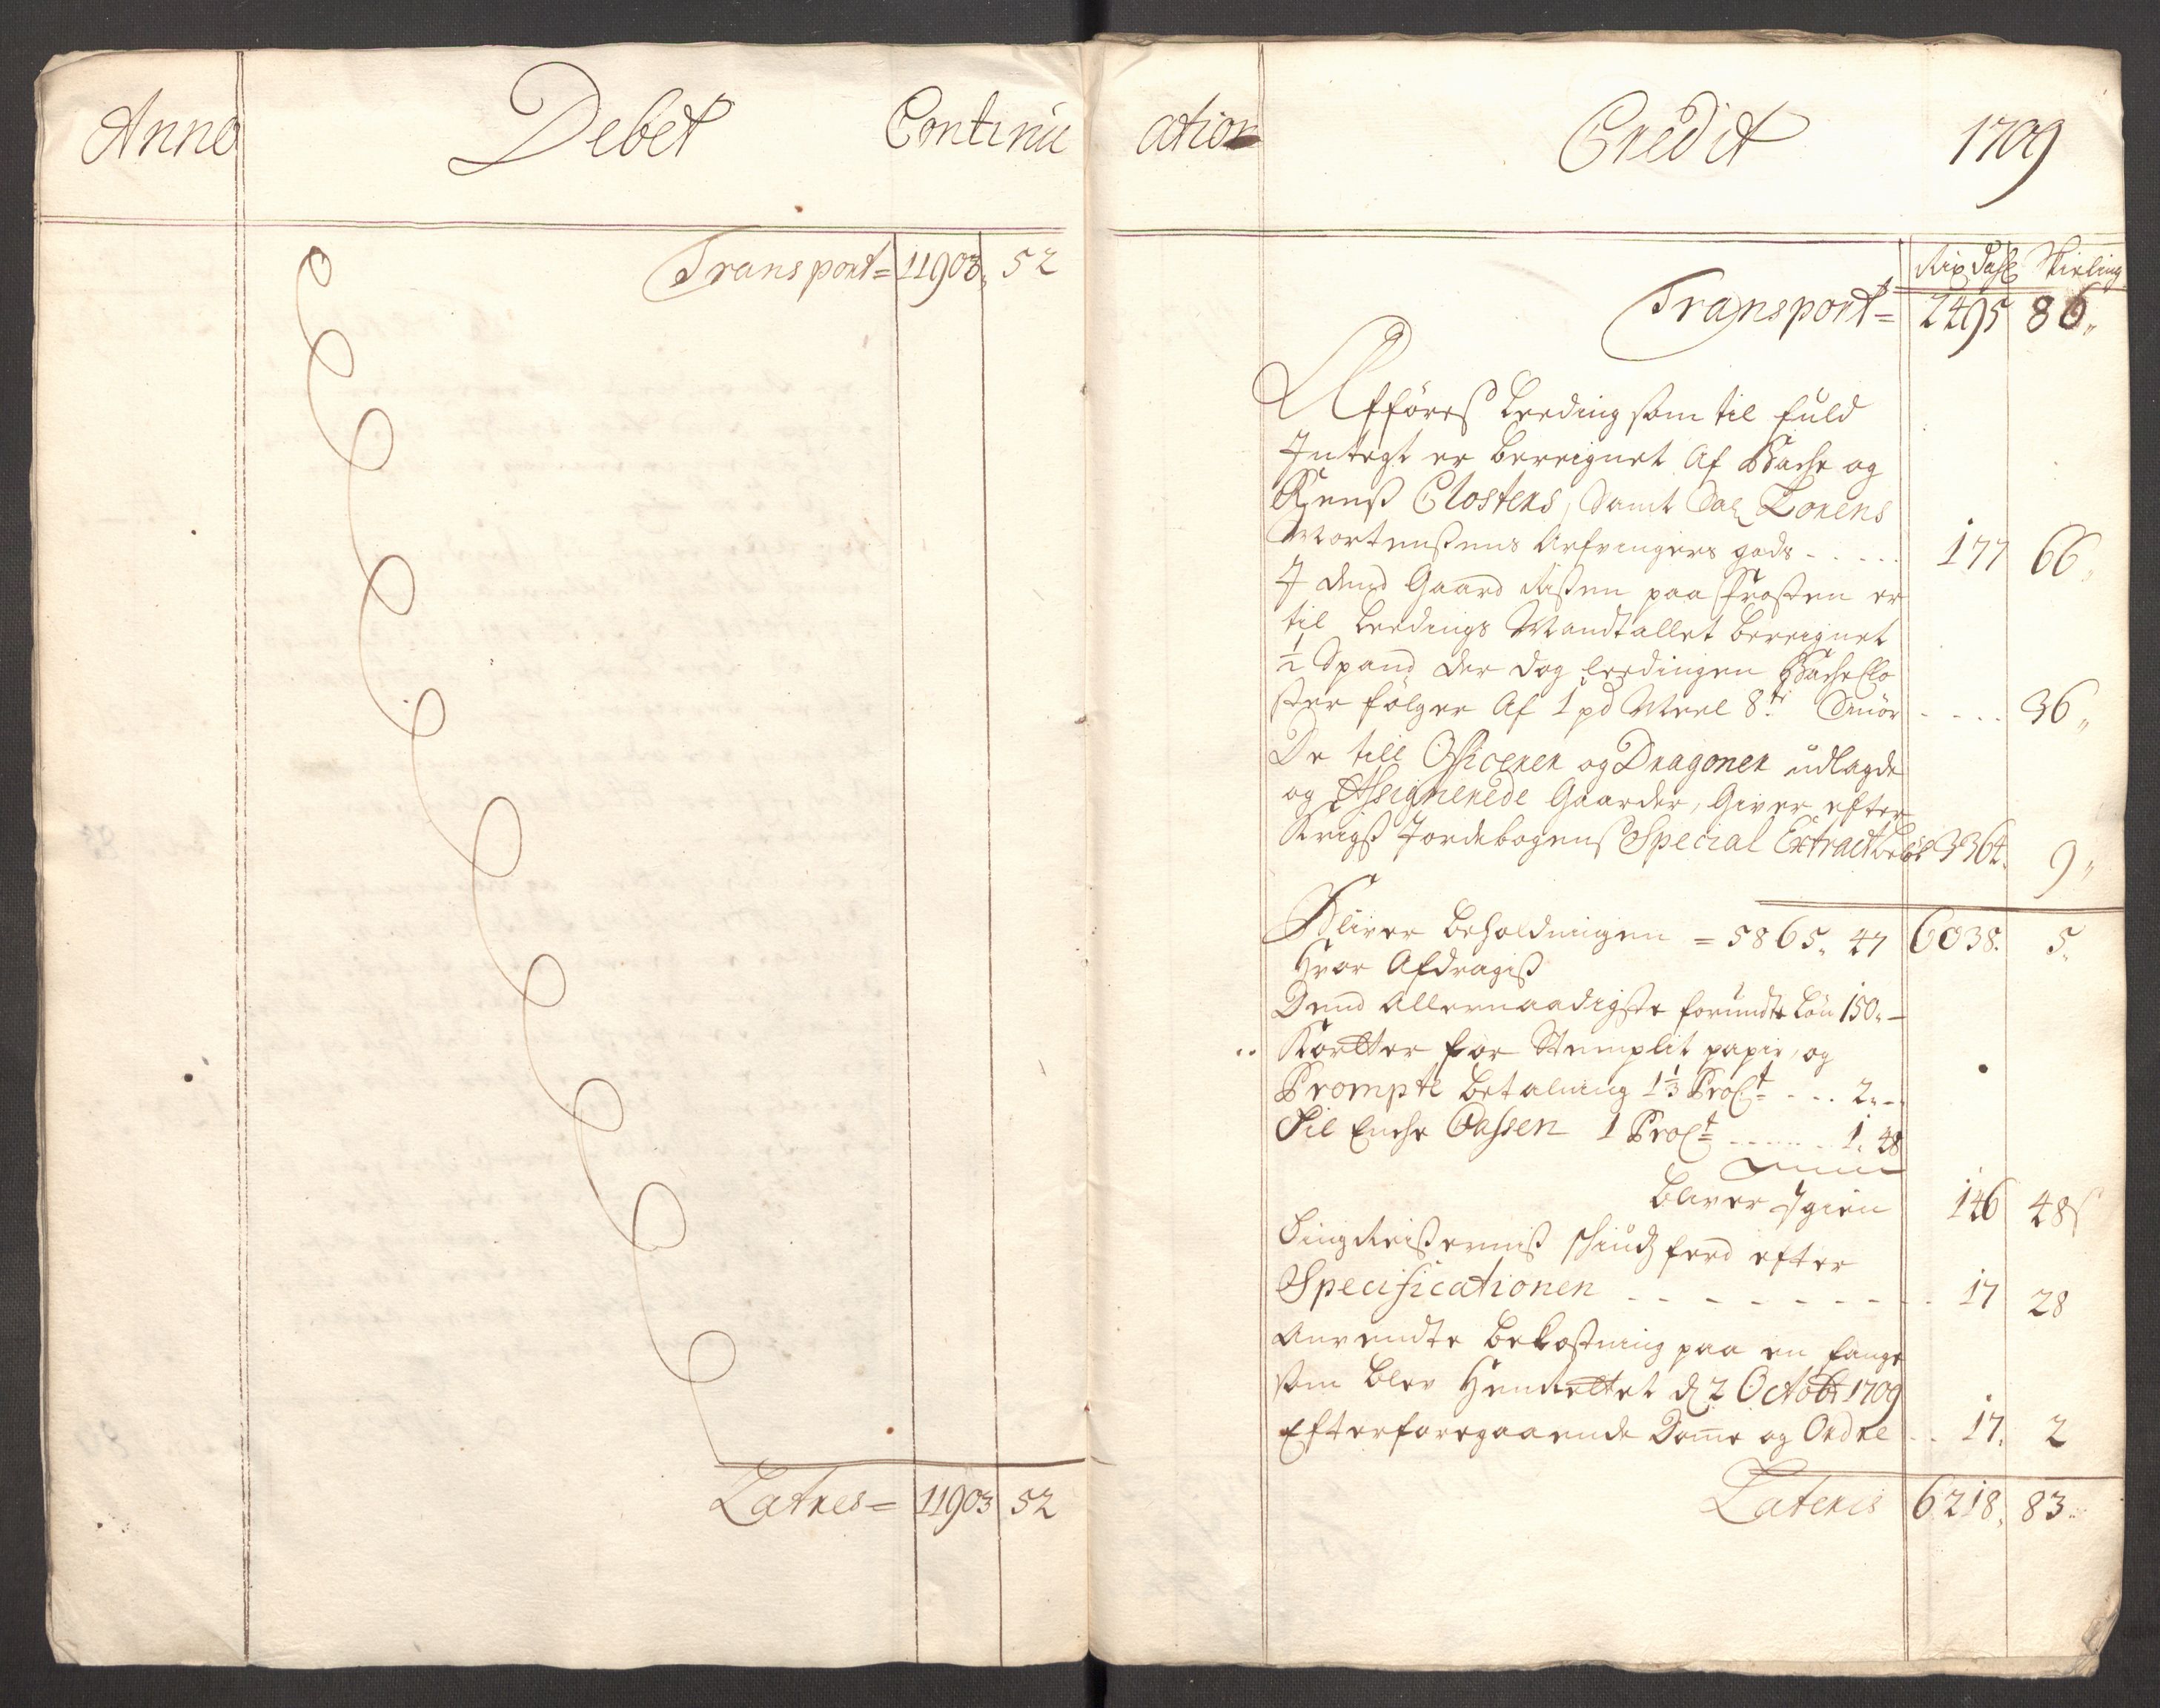 Anno Debet Continu
Transport = 11903. 52
Latres = 11903 52
ation Credit 1709
Rix dahl Skieling
Transport = 2495 86.
Afføres Leeding som til fuld
Indtegt er bereignet Af Bache og
Reens Closters, Samt Sal Lorens
Mortensens Arfvingers gods - - - - - 177 66.
J dend Gaard Risten paa Frosten er
til Leedings Mandtallet bereignet
1/2 Spand der dog leedingen Bache Clo
ster følger Af 1 pd Meel 8 Smör - - - - 36.
De till Officerer og Dragoner udlagde
og Assignerede Gaarder, Giver efter
Krigs Jordebogens Special Extract beløb 3364. 9.
Bliver beholdningen = 5865. 47 6038. 5.
Hvor Afdragis
Dend Allernaadigste forundte Løn 150. -
Kortter for Stemplit papir, og
Prompte betalning 1 1/3 ProCt - - - 2. - -
Til Enche Cassen 1 ProCt - - - - - 1. 48
bliver Igien 146 48
Ting Reisernis skiudsferd efter
Specificationen - - - - - - - - 17 28
Anvendte bekostning paa en fange
som blev Henrettet d 2 Octobr 1709
Efter foregaaende Dome og Ordre - - 17. 2
Lateris 6218. 83.